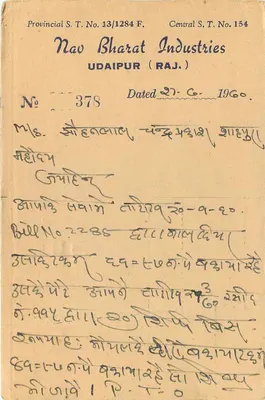 Provincial S. T. No. 13/1284 F. Central S. T. No. 154
Nav Bharat Industries
UDAIPUR (RAJ.)
No 378 Dated 27-6-1960.
M/s. सोहनलाल चन्द्रप्रकाश शाहपुरा
महोदय
जयहिन्द
आपकी सेवामे तारीख
Bill No 2235 द्वारा माल दिया
उसकि रकम ६६=९७ न.पै बकाया रहे
उसके पेटे आपने तारीख रसीद
नं. ११५ द्वारा ३०)
बकाया रकम
३६=९७ न.पै बकाया रहे सो शिघ्र
भीजावे । P-T-O